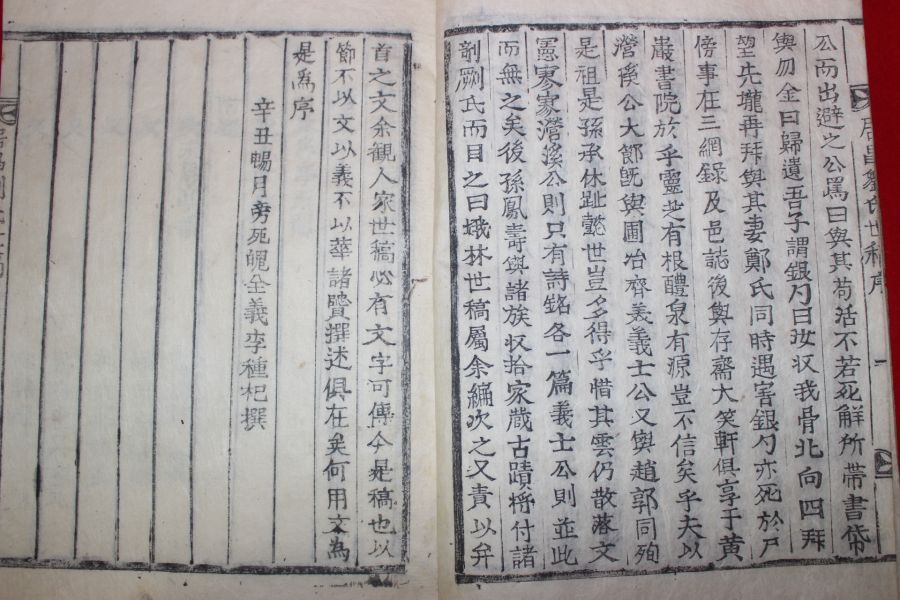 公而出避之公罵曰與其苟活不若死解所帶書帒
與勿金曰歸遺吾子謂銀勺曰汝収我骨北向四拜
望先壠再拜與其妻鄭氏同時遇害銀勺亦死於尸
傍事在三網錄及邑誌後與存齋大笑軒俱享于黃
巖書院於乎靈芝有根醴泉有源豈不信矣乎夫以
濳溪公大節旣與圃冶齊義義士公又與趙郭同殉
是祖是孫承休趾懿世豈多得乎惜其雲仍散落文
憲寥寥濳溪公則只有詩銘各一篇義士公則並此
而無之矣後孫鳳壽與諸族収拾家藏古蹟將付諸
剞劂氏而目之曰 林世稿屬余編次之又責以弁
首之文余観人家世稿必有文字可傳今是稿也以
節不以文以義不以華諸賢撰述俱在矣何用文為
是為序
辛丑暢月旁死魄全義李種杞撰
居昌劉氏世稿序
一